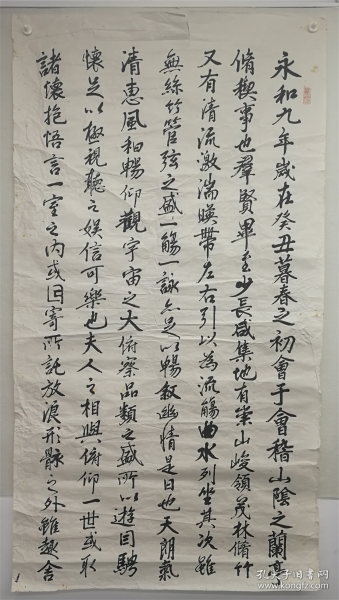 永和九年歲在癸丑暮春之初會于會稽山陰之蘭亭
脩禊事也羣賢畢至少長咸集地有崇山峻領茂林脩竹
又有清流激湍暎帶左右引以為流觴曲水列坐其次雖
無絲竹管弦之盛一觴一詠亦足以暢敘幽情是日也天朗氣
清惠風和暢仰觀宇宙之大俯察品類之盛所以遊目騁
懷足以極視聽之娛信可樂也夫人之相與俯仰一世或取
諸懷抱悟言一室之内或因寄所託放浪形骸之外雖趣舍
孔夫子旧书网